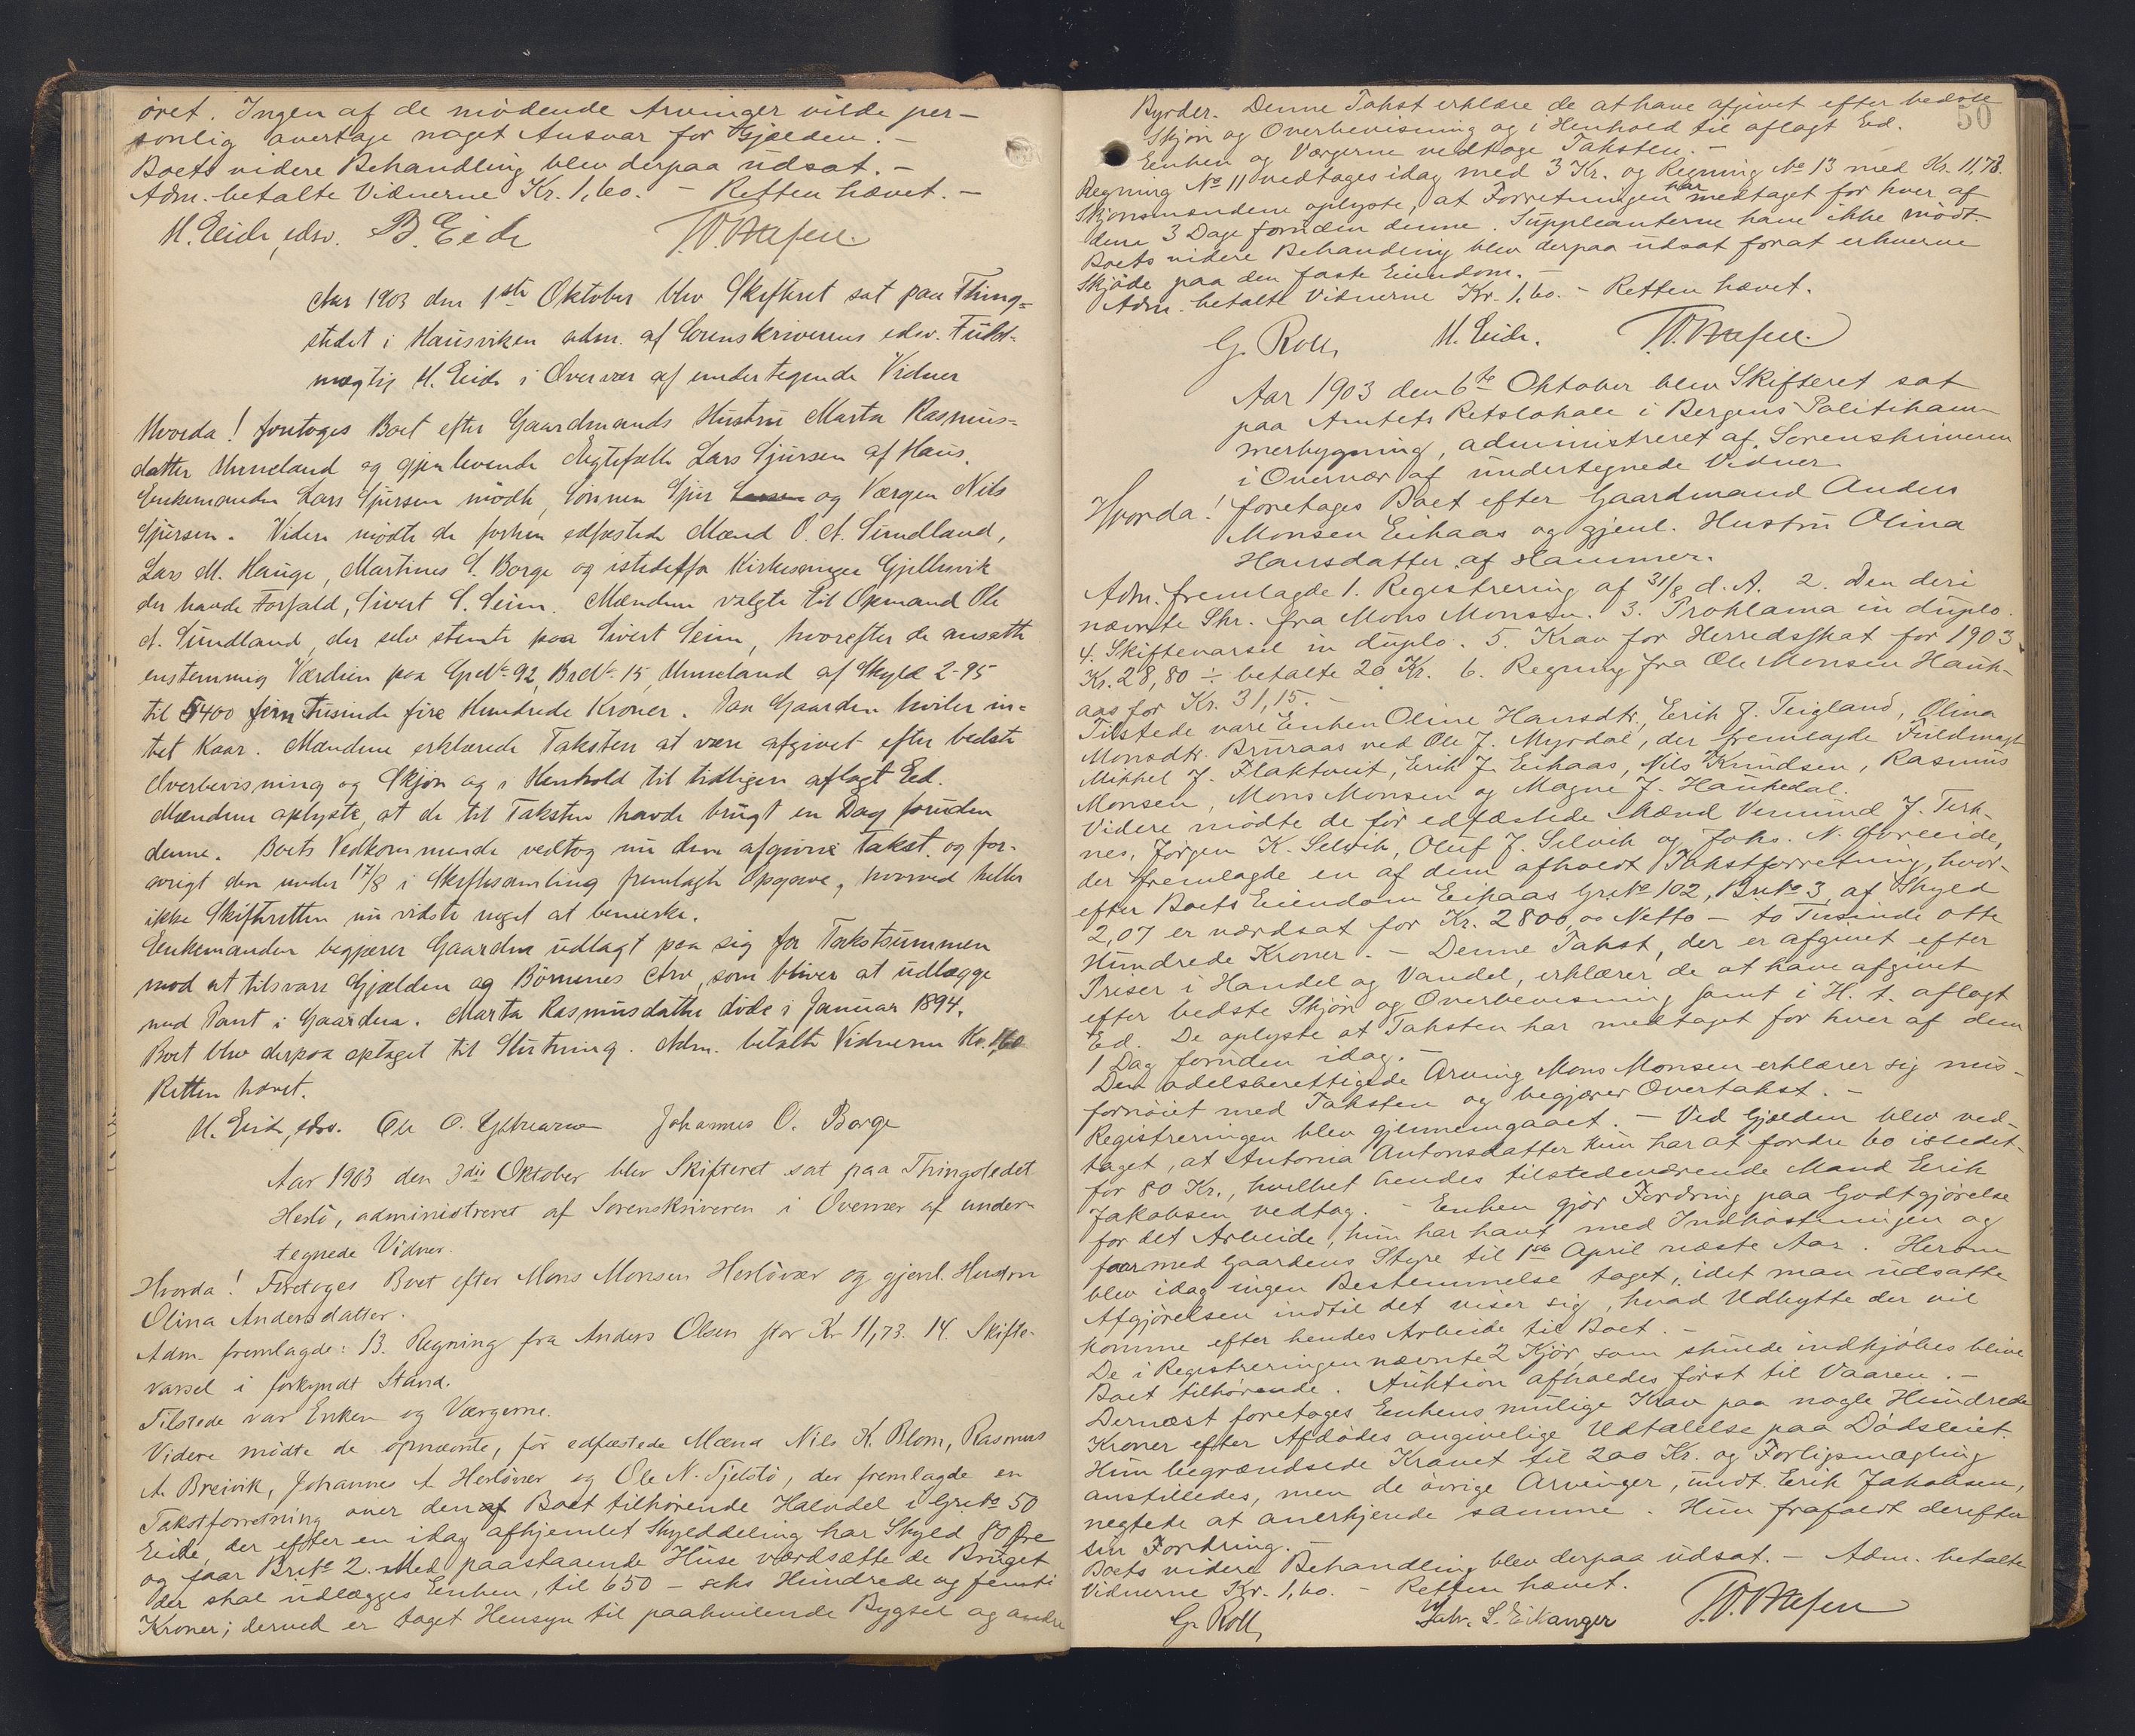 øret. Ingen af de mødende Arvinger vilde per-
sonlig overtage noget Ansvar for Gjælden. -
Boets videre Behandling blev derpaa udsat. -
Adm. betalte Vidnerne Kr. 1,60. - Retten hævet. -
M. Eide, edsv. B. Eide
Aar 1903 den 1ste Oktober blev Skifteret sat paa Thing-
stedet i Hausviken adm. af Sorenskriverens edsv. Fuld-
mægtig M. Eide i Overvær af undertegnede Vidner
Hvorda! foretoges Boet efter Gaardmands Hustru Marta Rasmus-
datter Unneland og gjenlevende Ægtefælle Lars Sjursen af Haus.
Enkemanden Lars Sjursen mødte, Sønnen Sjur Larsen og Værgen Nils
Sjursen. Videre mødte de forhen edfæstede Mænd O. A. Sundland,
Lars M. Hauge, Martinus S. Borge og istedetfor Kirkesanger Gjellesvik
der havde Forfald, Sivert S. Seim. Mændene valgte til Opmand Ole
A. Sundland, der selv stemte paa Sivert Seim, hvorefter de ansatte
enstemmig Værdien paa Gr.N. 92, Br.N. 15, Unneland af Skyld 2-95
til 5400 fem Tusinde fire Hundrede Kroner. Paa Gaarden hviler in-
tet Kaar. Mændene erklærede Taksten at være afgivet efter bedste
Overbevisning og Skjøn og i Henhold til tidligere aflagt Ed.
Mændene oplyste, at de til Taksten havde brugt en Dag foruden
denne. Boets Vedkommende vedtog nu den afgivne Takst og for-
øvrigt den under 17/8 i Skiftesamling fremlagte Opgave, hvorved heller
ikke Skifteretten nu vidste noget at bemerke.
Enkemanden begjærer Gaarden udlagt paa sig for Takstsummen
mod at tilsvare Gjælden og Børnenes Arv, som bliver at udlægge
med Pant i Gaarden. Marta Rasmusdatter døde i Januar 1894.
Boet blev derpaa optaget til Slutning. Adm. betalte Vidnerne Kr. 1,60
Retten hævet.
M. Eide, edsv. Ole O. Johannes O. Borge
Aar 1903 den 3die Oktober blev Skifteret sat paa Thingstedet
Herlø, administreret af Sorenskriveren i Overvær af under-
tegnede Vidner.
Hvorda! Foretoges Boet efter Mons Monsen Herløvær og gjenl. Hustru
Olina Andersdatter.
Adm. fremlagde: 13. Regning fra Anders Olsen stor Kr 11,73. 14. Skifte-
varsel i forkyndt Stand.
Tilstede var Enken og Værgerne.
Videre mødte de opnævnte, før edfæstede Mænd Nils K. Blom, Rasmus
A. Breivik, Johannes A. Herløvær og Ole N. Tjelstø, der fremlagde en
Takstforretning over den af Boet tilhørende Halvdel i Gr.No 50
Eide, der efter en idag afhjemlet Skylddeling har Skyld 80 Øre
og faar Br.No 2. Med paastaaende Huse værdsætte de Bruget
der skal udlægges Enken, til 650 - seks Hundrede og femti
Kroner; derved er taget Hensyn til paahvilende Bygsel og andre
50
Byrder. Denne Takst erklære de at have afgivet efter bedste
Skjøn og Overbevisning og i Henhold til aflagt Ed.
Enken og Værgerne vedtoge Taksten. -
Regning No 11 vedtages idag med 3 Kr. og Regning No 13 med Kr. 11,73.
Skjønsmændene oplyste, at Forretningen har medtaget for hver af
dem 3 Dage foruden denne. Suppleanterne have ikke mødt.
Boets videre Behandling blev derpaa udsat forat erhverve
Skjøde paa den faste Eiendom. -
Adm. betalte Vidnerne Kr. 1,60. - Retten hævet.
G. Roll, M. Eide.
Aar 1903 den 6te Oktober blev Skifteret sat
paa Amtets Retslokale i Bergens Politikam-
merbygning, administreret af Sorenskriveren
i Overvær af undertegnede Vidner.
Hvorda! foretoges Boet efter Gaardmand Anders
Monsen Eikaas og gjenl. Hustru Olina
Hansdatter af Hammer.
Adm. fremlagde 1. Registrering af 31/8 d. A. 2. Den deri
nævnte Skr. fra Mons Monsen. 3. Proklama in duplo.
4. Skiftevarsel in duplo. 5. Krav for Herredsskat for 1903
Kr. 28,80 ÷ betalte 20 Kr. 6. Regning fra Ole Monsen Hauk-
aas for Kr. 31,15. -
Tilstede vare Enken Oline Hansdtr., Erik J. Teigland, Olina
Monsdtr. Bruraas ved Ole J. Myrdal, der fremlagde Fuldmagt
Mikkel J. Flaktveit, Erik J. Eikaas, Nils Knudsen, Rasmus
Monsen, Mons Monsen og Magne J. Haukedal.
Videre mødte de før edfæstede Mænd Vemund J. Terk-
nes, Jørgen K. Selvik, Oluf J. Selvik og Johs. N.
der fremlagde en af dem afholdt Takstforretning, hvor-
efter Boets Eiendom Eikaas Gr.No 102, Br.No 3 af Skyld
2,07 er værdsat for Kr. 2800,00 Netto - to Tusinde otte
Hundrede Kroner. - Denne Takst, der er afgivet efter
Priser i Handel og Vandel, erklærer de at have afgivet
efter bedste Skjøn og Overbevisning samt i H. t. aflagt
Ed. De oplyste at Taksten har medtaget for hver af dem
1 Dag foruden idag. -
Den odelsberettigede Arving Mons Monsen erklærer sig mis-
fornøiet med Taksten og begjærer Overtakst. -
Registreringen blev gjennemgaaet. - Ved Gjælden blev ved-
taget, at Antona Antonsdatter kun har at fordre 60 istedet-
for 80 Kr., hvilket hendes tilstedeværende Mand Erik
Jakobsen vedtog. - Enken gjør Fordring paa Godtgjørelse
for det Arbeide, hun har havt med Indhøstningen og
faar med Gaardens Styre til 1ste April næste Aar. Herom
blev idag ingen Bestemmelse taget, idet man udsatte
Afgjørelsen indtil det viser sig, hvad Udbytte der vil
komme efter hendes Arbeide til Boet. -
De i Registreringen nævnte 2 Kjør, som skulde indkjøbes blive
Boet tilhørende. Auktion afholdes først til Vaaren. -
Dernæst foretoges Enkens mulige Krav paa nogle Hundrede
Kroner efter Afdødes angivelige Udtalelse paa Dødsleiet.
Hun begrændsede Kravet til 200 Kr. og Forligsmægling
anstilledes, men de øvrige Arvinger, undt. Erik Jakobsen,
negtede at anerkjende samme. Hun frafaldt derefter
sin Fordring. -
Boets videre Behandling blev derpaa udsat. - Adm. betalte
Vidnerne Kr. 1,60. - Retten hævet.
G. Roll, Salv. S. Eikanger